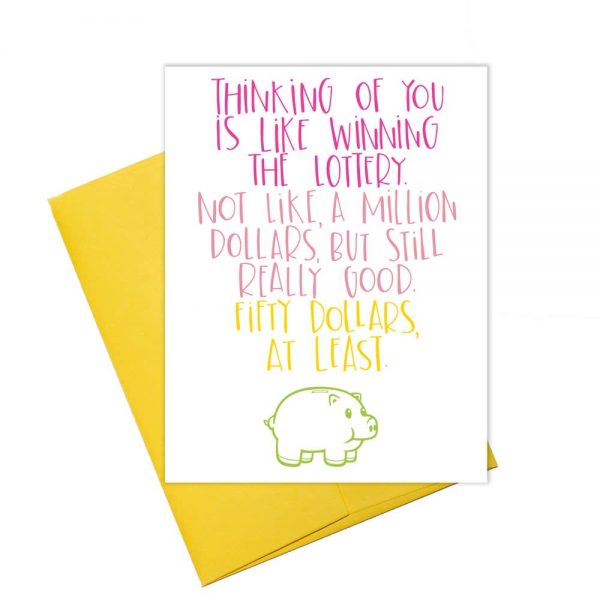 THINKING OF YOU
IS LIKE WINNING
THE LOTTERY.
NOT LIKE, A MILLION
DOLLARS, BUT STILL
REALLY GOOD.
FIFTY DOLLARS,
AT LEAST.